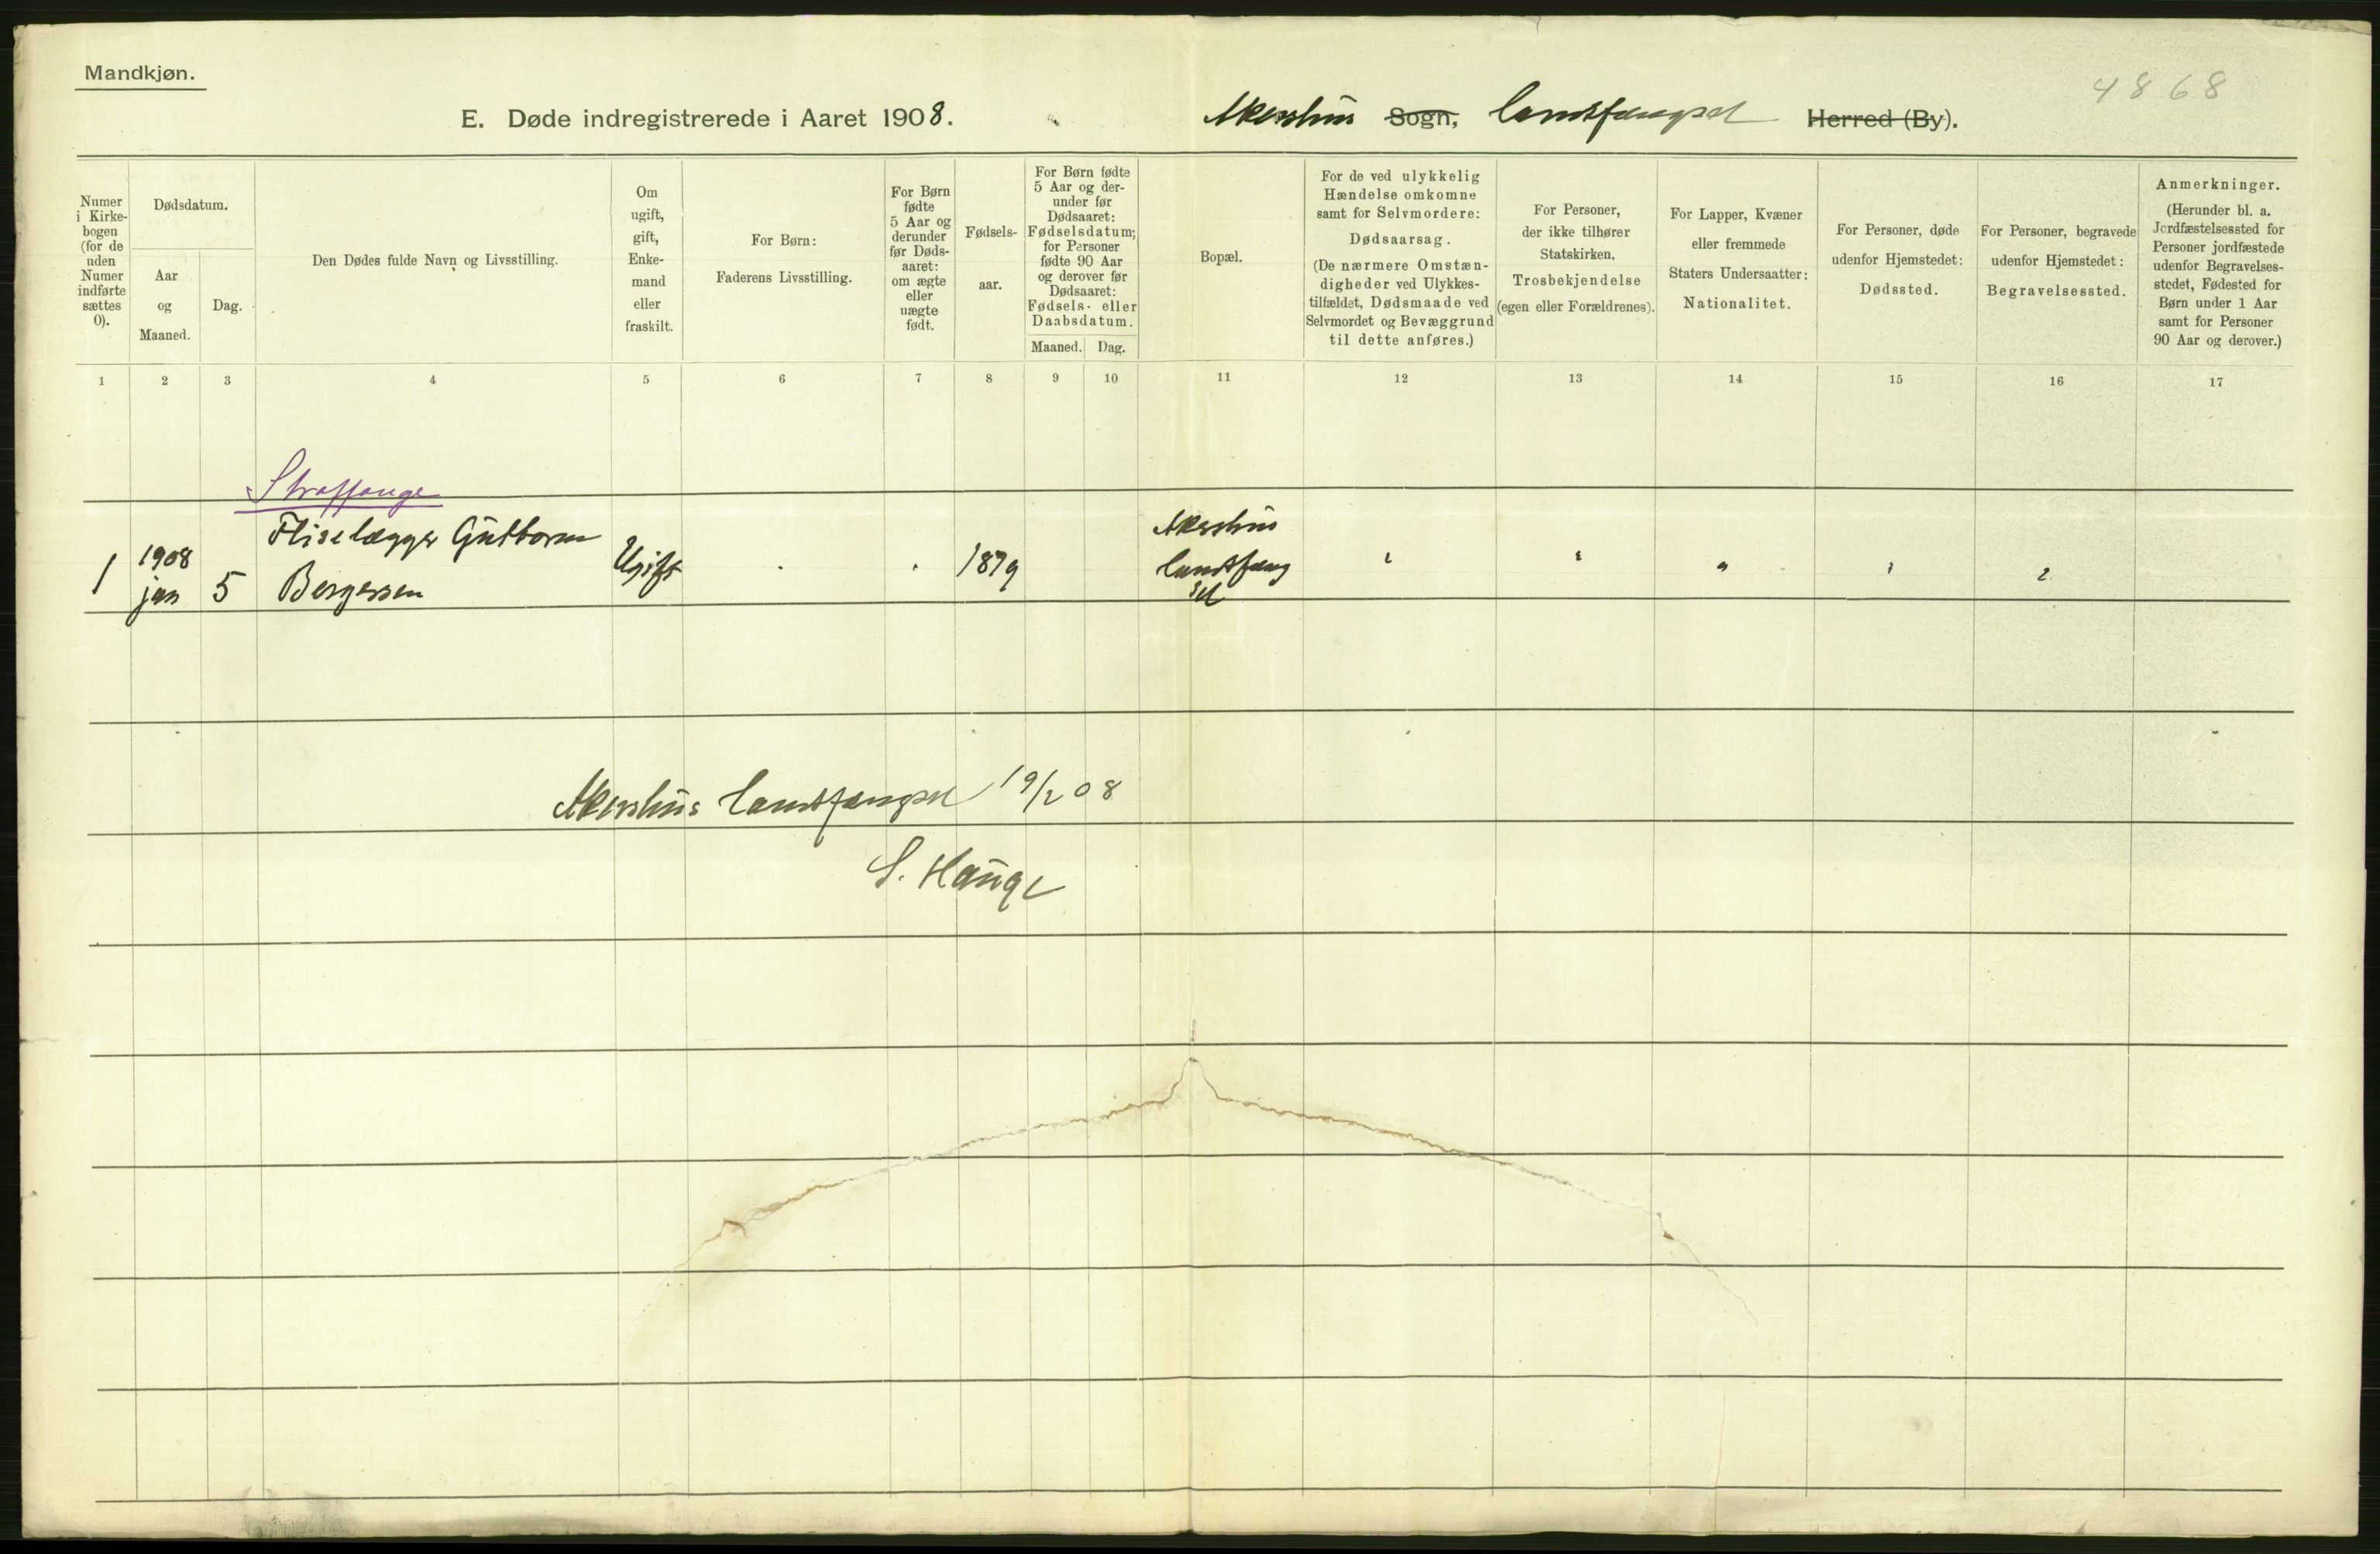 Mandkjøn.
4868
E. Døde indregistrerede i Aaret 1908. Akershus Sogn, landsfængsel Herred (By).
Numer
i Kirke-
bogen
(for de
uden
Numer
indførte
sættes
0).
Dødsdatum.
Aar
og
Maaned.
Dag.
Den Dødes fulde Navn og Livsstilling.
Om
ugift,
gift,
Enke-
mand
eller
fraskilt.
For Børn:
Faderens Livsstilling.
For Børn
fødte
5 Aar og
derunder
før Døds-
aaret:
om ægte
eller
uægte
født.
Fødsels-
aar.
For Børn fødte
5 Aar og der-
under før
Dødsaaret:
Fødselsdatum;
for Personer
fødte 90 Aar
og derover før
Dødsaaret:
Fødsels- eller
Daabsdatum.
Maaned. Dag.
Bopæl.
For de ved ulykkelig
Hændelse omkomne
samt for Selvmordere:
Dødsaarsag.
(De nærmere Omstæn-
digheder ved Ulykkes-
tilfældet, Dødsmaade ved
Selvmordet og Bevæggrund
til dette anføres.)
For Personer,
der ikke tilhører
Statskirken,
Trosbekjendelse
(egen eller Forældrenes).
For Lapper, Kvæner
eller fremmede
Staters Undersaatter:
Nationalitet.
For Personer, døde
udenfor Hjemstedet:
Dødssted.
For Personer, begravede
udenfor Hjemstedet:
Begravelsessted.
Anmerkninger.
(Herunder bl. a.
Jordfæstelsessted for
Personer jordfæstede
udenfor Begravelses-
stedet, Fødested for
Børn under 1 Aar
samt for Personer
90 Aar og derover.)
1 2 3 4 5 6 7 8 9 10 11 12 13 14 15 16 17
Straffange
1
1908
jan
5
Fliselægger Guttorm
Bergersen
Ugift
1879
Akershus
landsfæng
sel
Akershus landsfængsel 19/2 08
S. Hauge